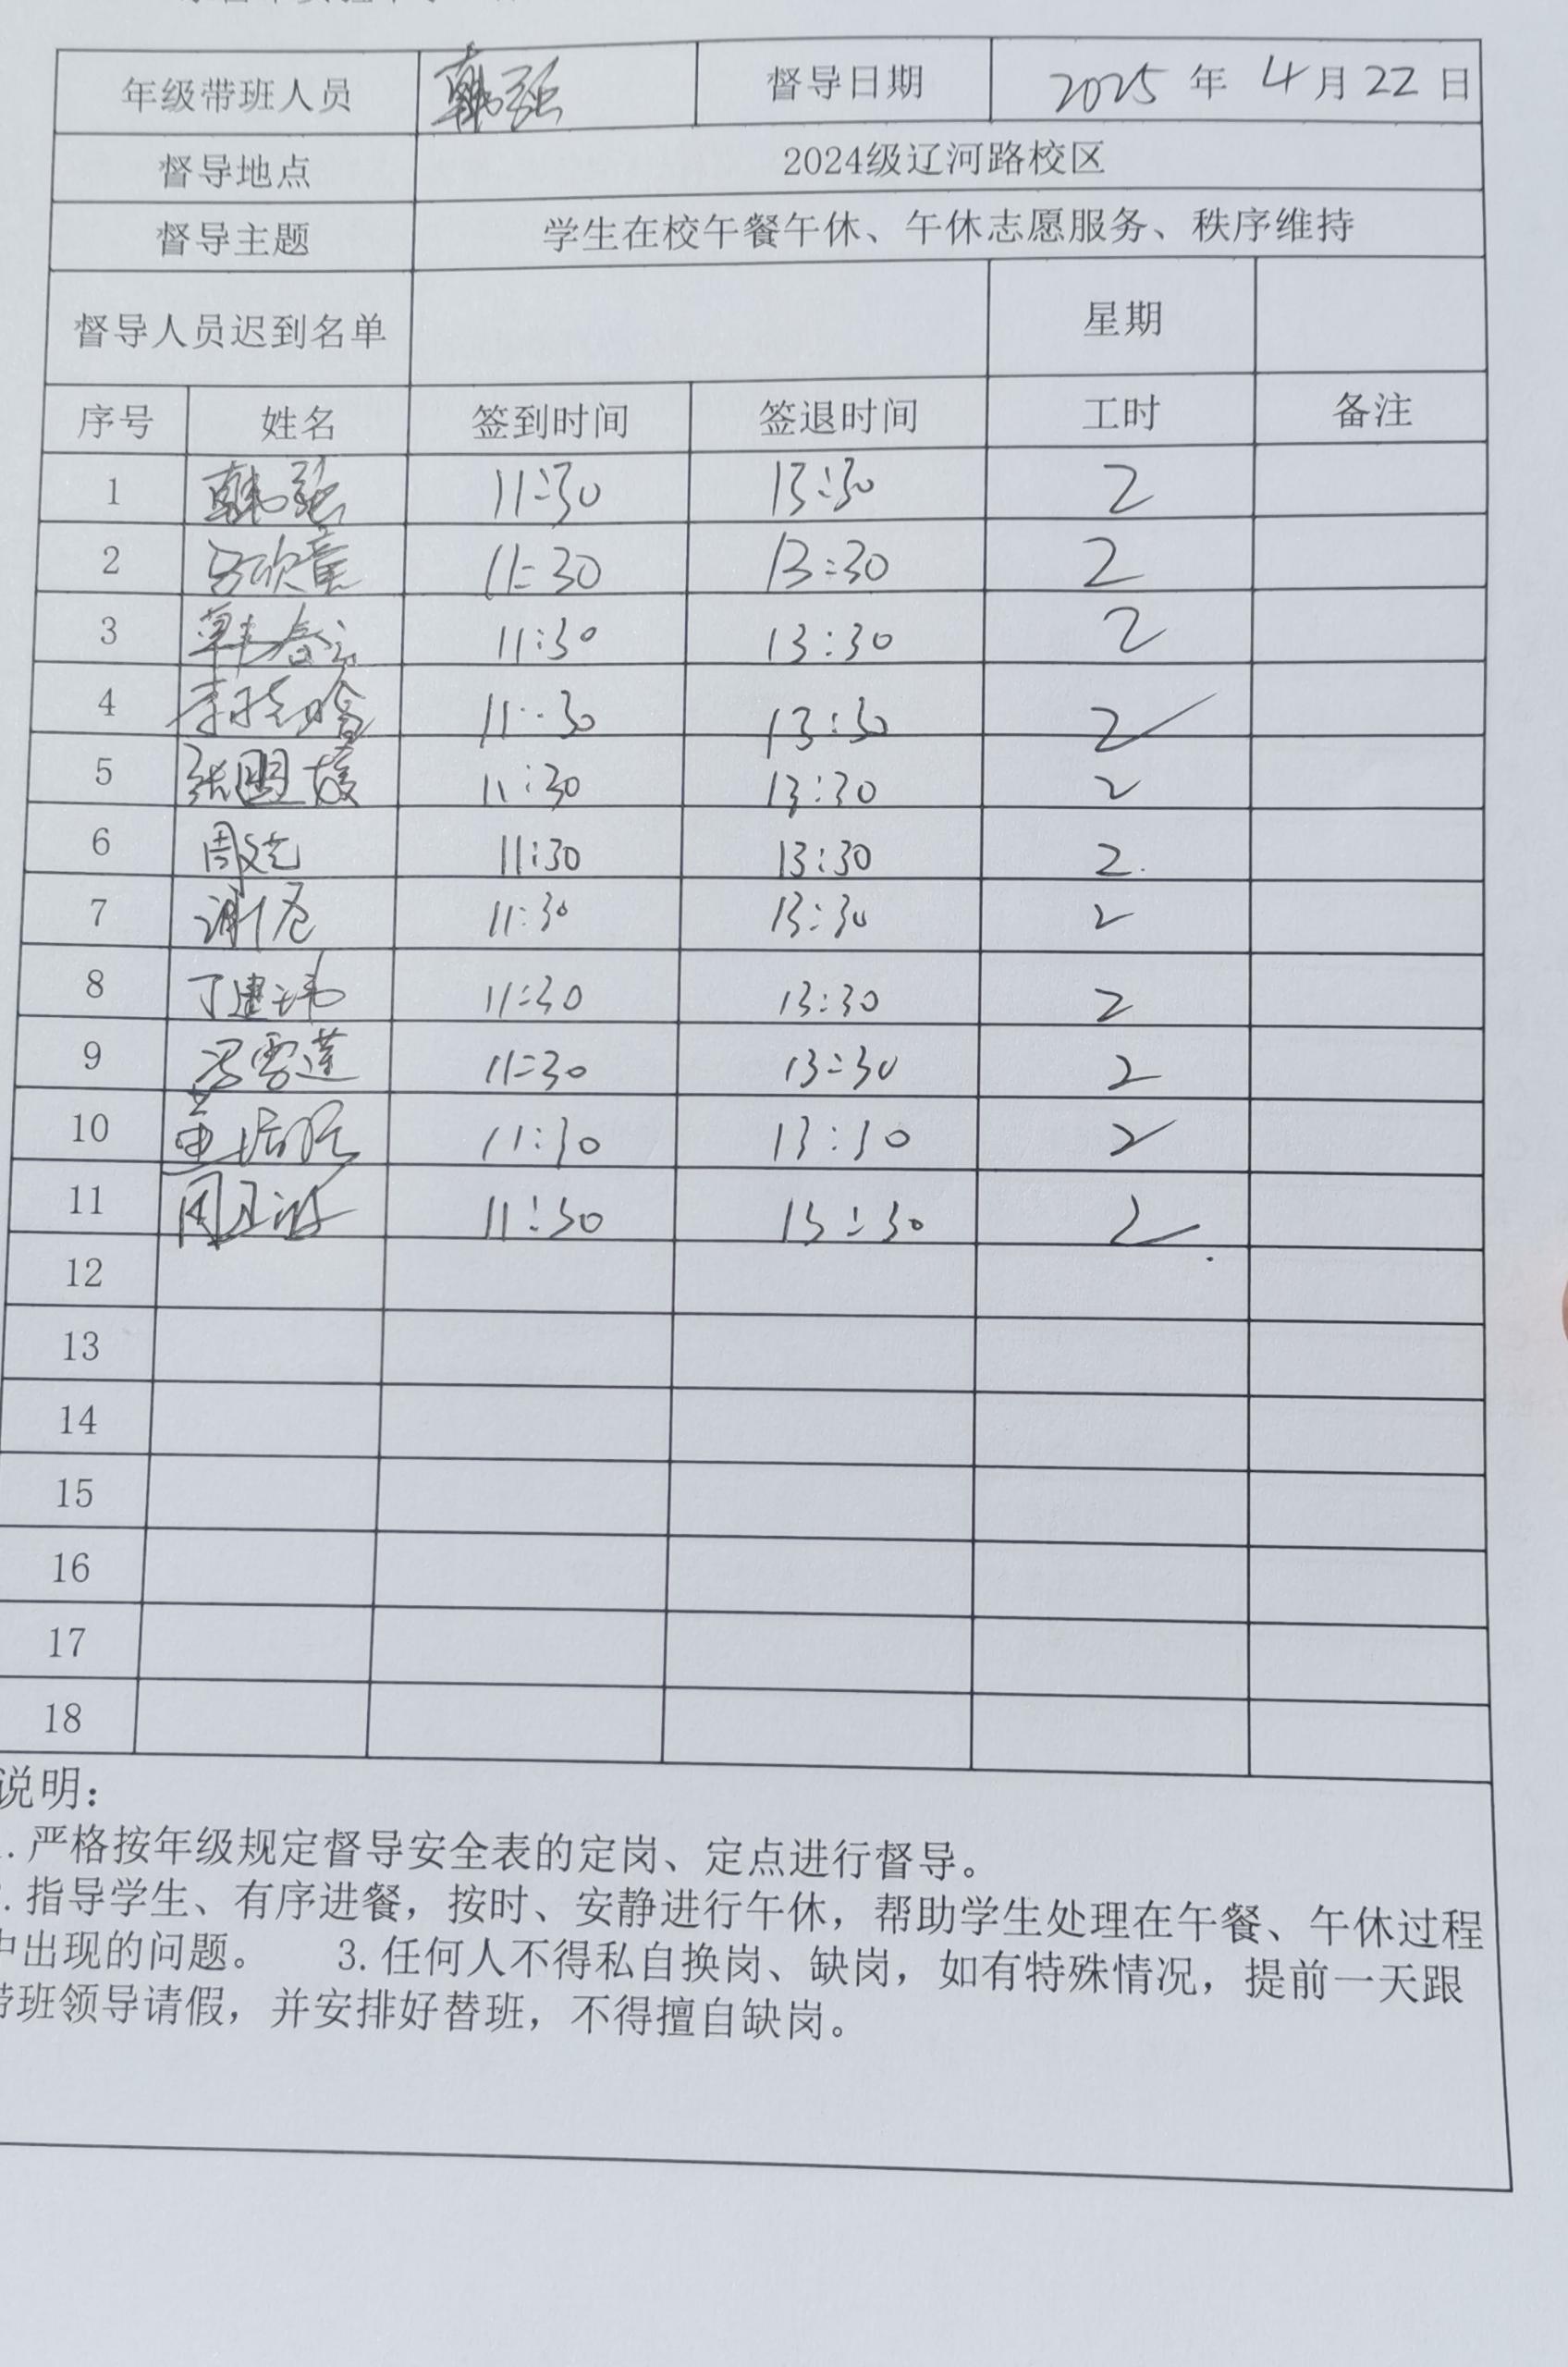 年级带班人员 韩强 督导日期 2025年 4月22日
督导地点 2024级辽河路校区
督导主题 学生在校午餐午休、午休志愿服务、秩序维持
督导人员迟到名单 星期
序号 姓名 签到时间 签退时间 工时 备注
1 韩强 11:30 13:30 2
2 11:30 13:30 2
3 韩春 11:30 13:30 2
4 李 11:30 13:30 2
5 张盟媛 11:30 13:30 2
6 周 11:30 13:30 2
7 谢 11:30 13:30 2
8 丁建玮 11:30 13:30 2
9 冯雪莲 11:30 13:30 2
10 11:30 13:30 2
11 周 11:30 13:30 2
12
13
14
15
16
17
18
说明：
. 严格按年级规定督导安全表的定岗、定点进行督导。
. 指导学生、有序进餐，按时、安静进行午休，帮助学生处理在午餐、午休过程
中出现的问题。 3. 任何人不得私自换岗、缺岗，如有特殊情况，提前一天跟
带班领导请假，并安排好替班，不得擅自缺岗。